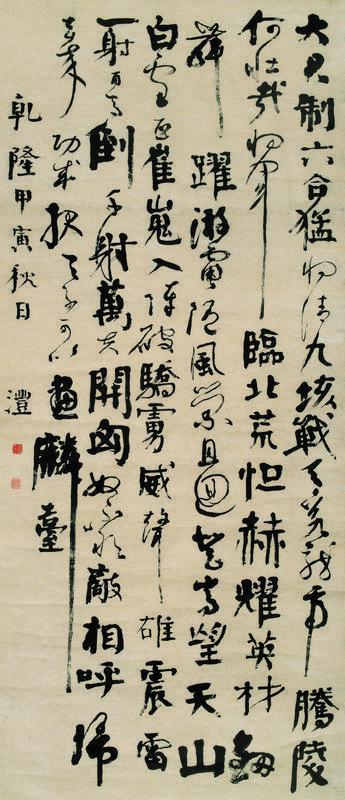 大君制六合猛將清九垓戰馬若龍虎騰陵
何壯哉將軍臨北荒怛赫耀英材劍
舞躍游電隨風縈且迴登高望天山
白雪正崔嵬入陣破驕虜威聲雄震雷
一射百馬倒再射萬夫開匈奴不敢敵相呼歸
去來功成報天子可以畫麟臺
乾隆甲寅秋日 澧